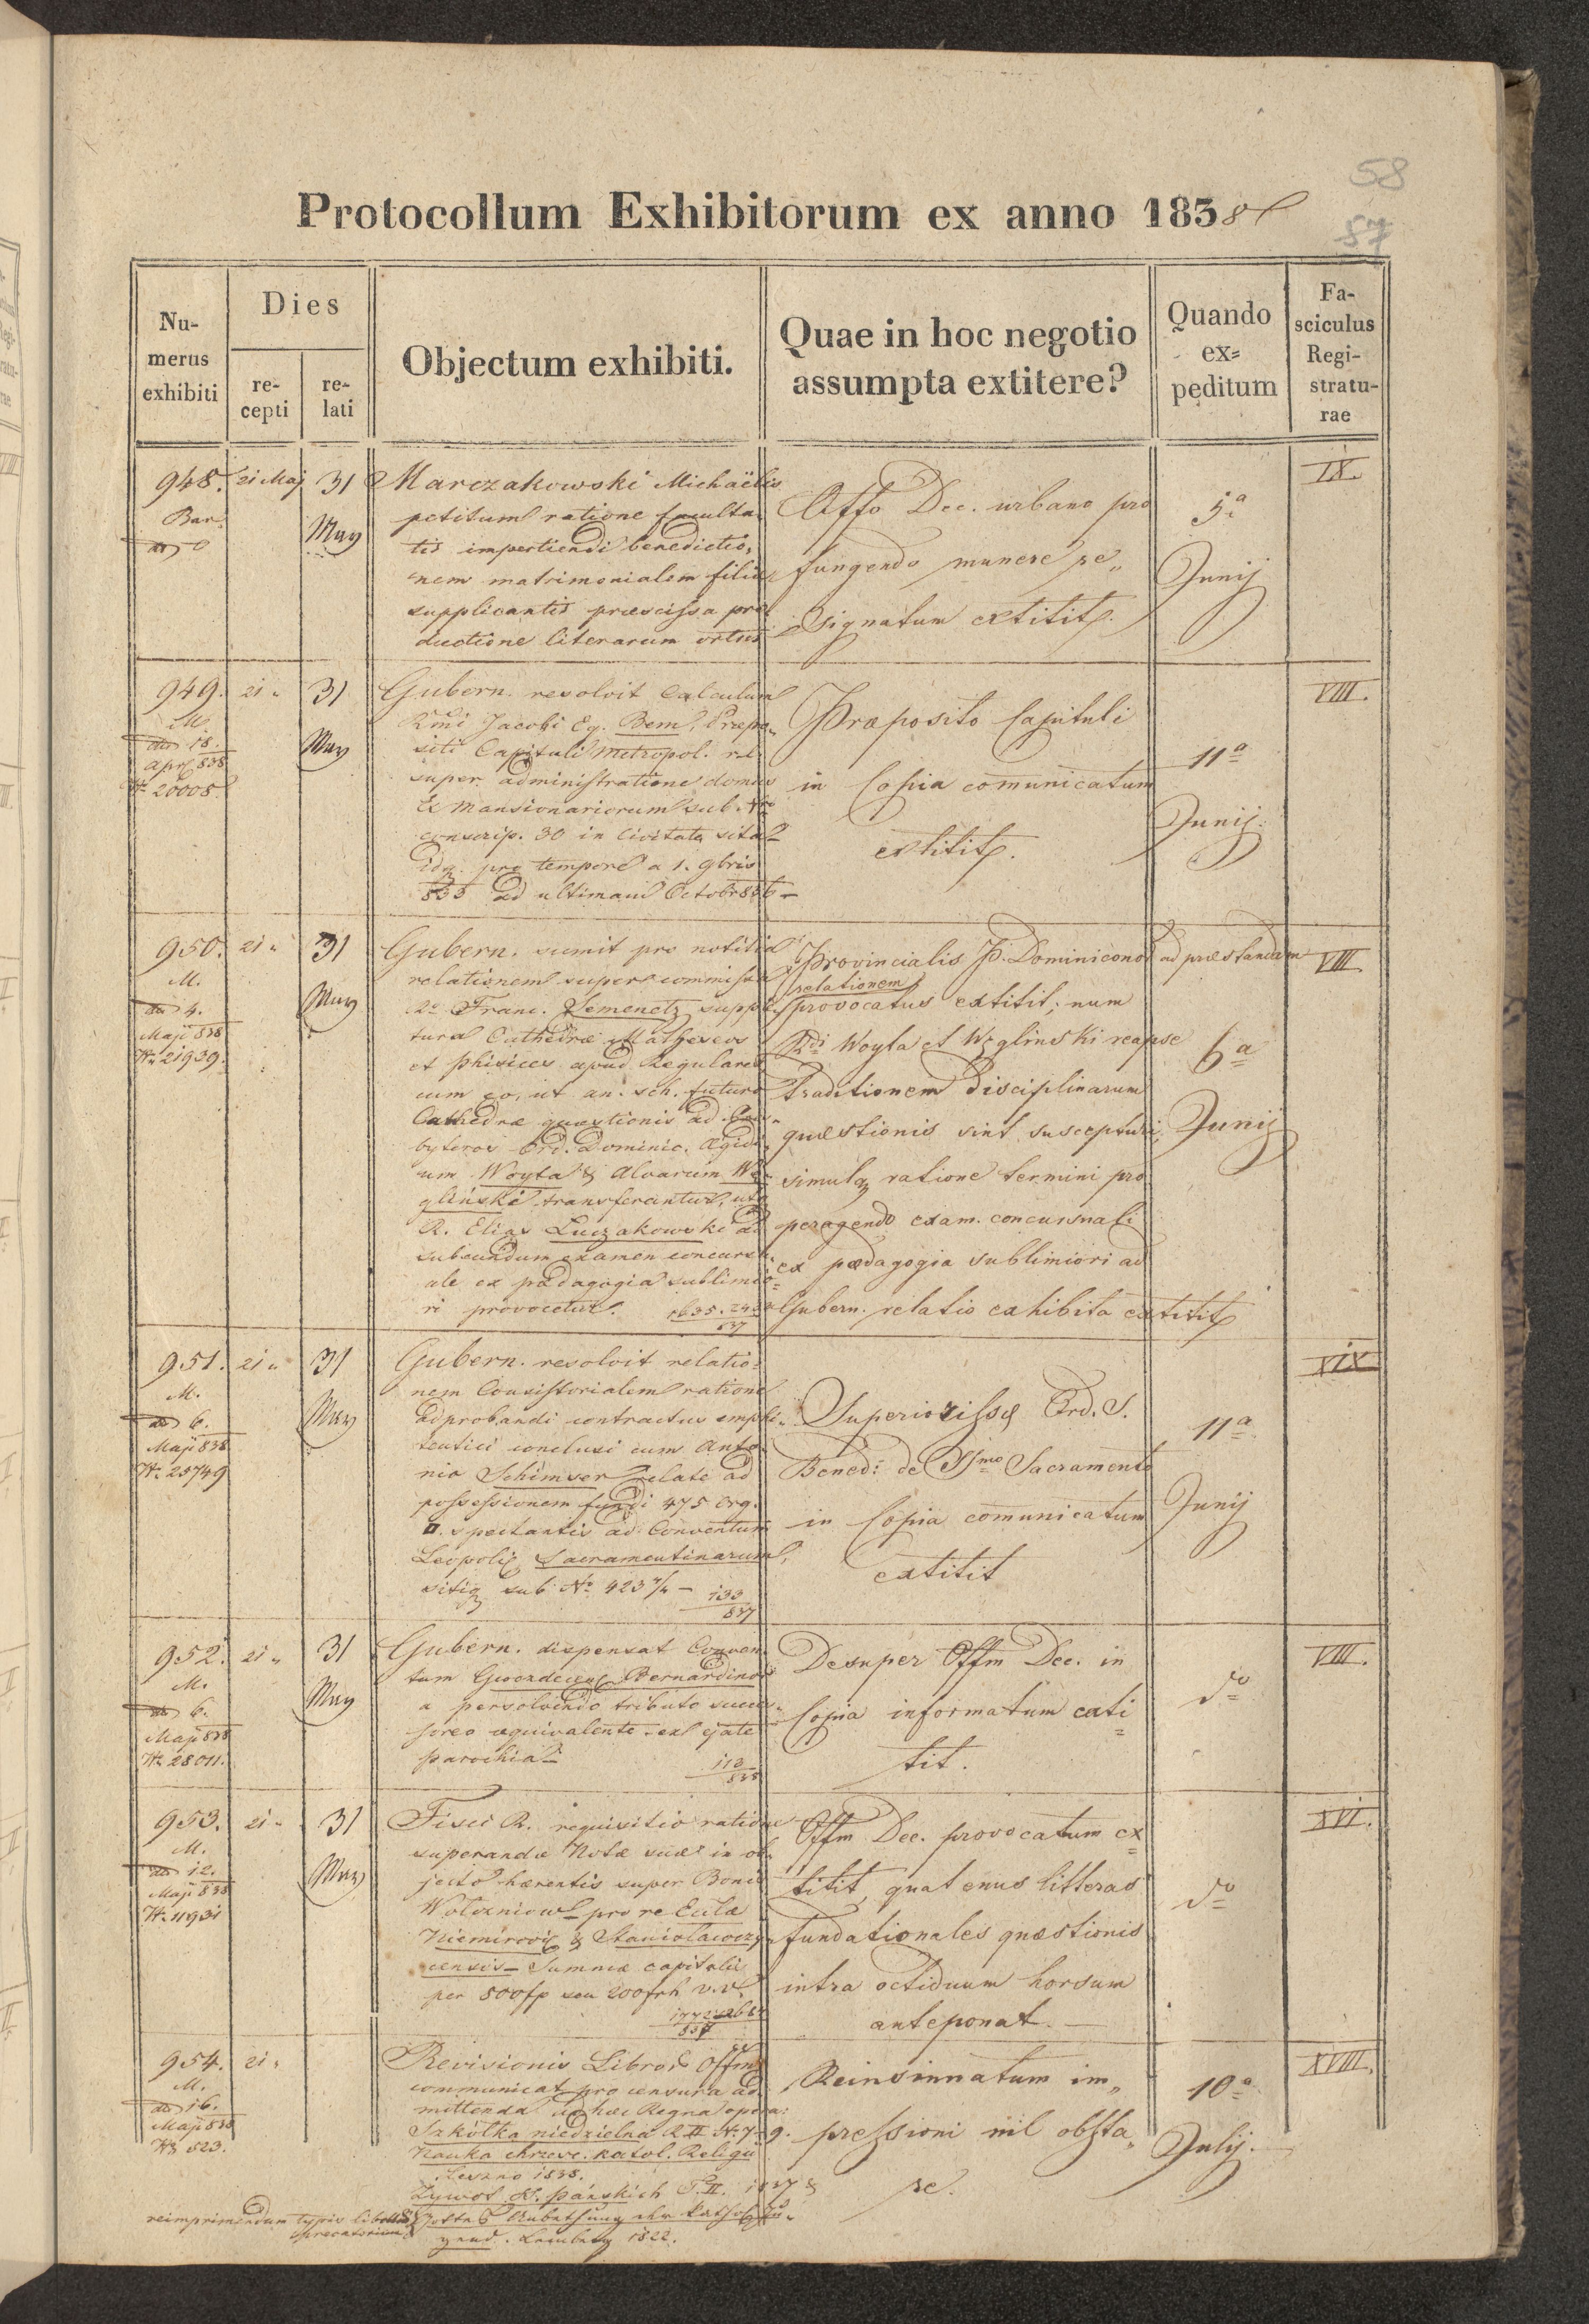 58
57
Protocollum Exhibitorum ex anno 1838
Numerus exhibiti
Dies
recepti
relati
Objectum exhibiti.
Quae in hoc negotio assumpta extitere?
Quando ex=peditum
Fasciculus Registraturae
948.
21 Maj
31
May
Marczakowski Michaëlis
petitum ratione faculta
tis impertiendi benedictio,
nem matrimonialem filiæ
supplicantis præscissa pro
ductione literarum ortus
Offo Dec. urbano pro
fungendo munere re„
signatum extitit.
5a
Junij
IX.
949.
M.
18.
Apr 838
№ 20008.
21 „
31
May
Gubern. resolvit Calculum
Rmi Jacobi Eq. Bem, Præpo„
siti Capituli Metropol. r.l.
super administratione domus
Mansionariorum sub Nro
conscrip. 30 in Civitate sita
idq. pro tempore a 1. 9bris
835 ad ultimam Octobr 836
Præposito Capituli
in Copia comunicatum
extitit.
11a
Junij.
VIII.
950.
M.
4.
Maji 838
№ 21939.
21 „
31
May
Gubern. sumit pro notitia
relationem super commissa
Franc. Semenetz supple
tura Cathedræ Matheseos
et Phisices apud Regulares
cum eo, ut an. sch. futuro
Cathedræ quæstionis ad Præs„
byteros Ord. Dominic. Ægidi
um Woyta & Alvarum Wę
gliński transferantur, utq
R. Elias Luczakowski ad
subeundum examen concursu
ale ex pædagogia sublimio=
ri provocetur.
837
Provincialis P. Dominicano ad præstandam
relationem
provocatus extitit, num
Rdi Woyta et Węglinski reapse
traditionem disciplinarum
quæstionis sint suscepturi,
simulq ratione termini pro
peragendo exam. concursuali
ex pædagogia sublimiori ad
Gubern. relatio exhibita extitit
6a
Junij
VIII.
951.
M.
6.
Maji 838
№ 25749
21 „
31
May
Gubern. resolvit relatio=
nem Consistorialem ratione
adprobandi contractus emphi„
teutici conclusi cum Anto
nio Schimser relate ad
possessionem fundi 475 org.
□. spectantis ad Conventum
Leopoli Sacramentinarum,
sitiq sub № 423 2/4 –
133
837
Superiorissæ Ord. S.
Bened: de Ssmo Sacramento
in Copia comunicatum
extitit
11a
Junij
XIX
952.
M.
6.
Maji 838
№ 28011.
21 „
31
May
Gubern. dispensat Conven
tum Bernardinor
a persolvendo tributo succes„
soreo æquivalente
parochia
113
838
Desuper Offm Dec. in
Copia informatum exti
tit.
do
VIII.
953.
M.
12.
Maji 838
№ 11931
21 „
31
May
Fisci R. requisitio ratione
superandæ Notæ suæ in ob„
jecto hærentis super Bonis
pro re Eccłæ
Niemirov & Stanislawczy„
censis – Summæ capitalis
per 500fp seu 200frh v.v.
837
Offm Dec. provocatum ex
titit, quatenus litteras
fundationales quæstionis
intra octiduum horsum
anteponat. –
do
XVI.
954.
M.
16.
Maji 838
№ 523.
21 „
Revisionis Libror. Offm
communicat pro censura ad
mittenda ad hæc Regna opera:
Szkółka niedzielna R. II № 7–9.
Nauka chrześc. katol. Religii
Leszno 1838.
Żywot ŚŚ. Pańskich T. II. 1837 &
reimprimendum typis libellum
precatorium:
Lemberg 1822.
Reinsinuatum im„
pressioni nil obsta„
re.
10a
Julij.
XVIII.